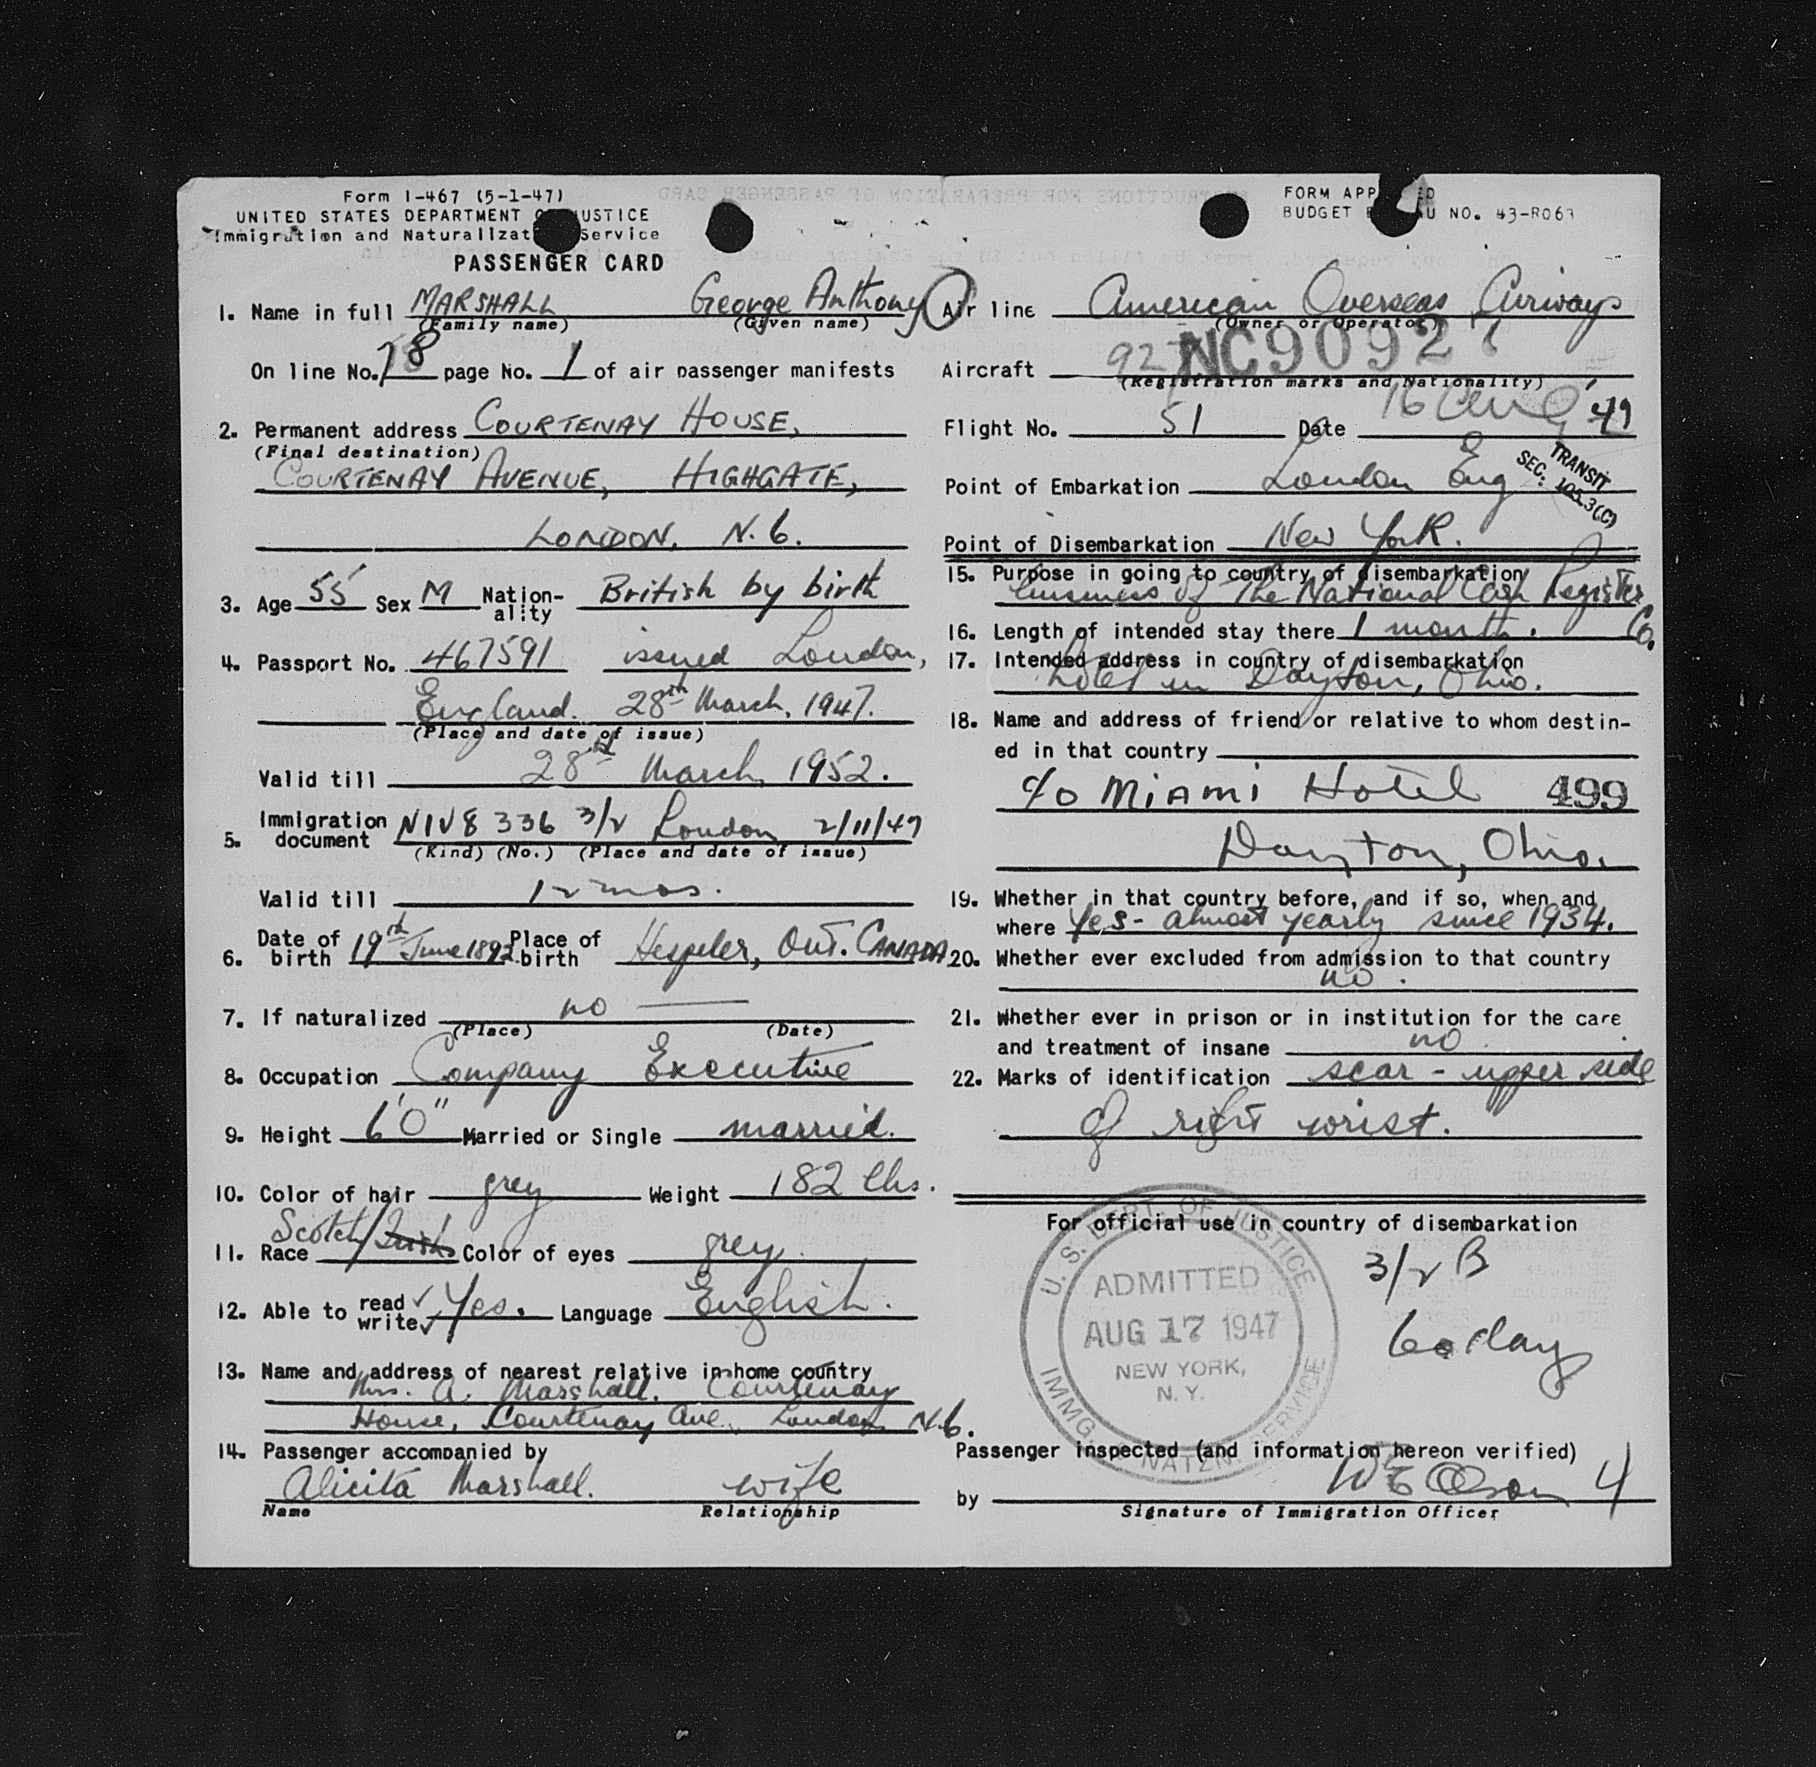 Form I-467 (5-1-47)
UNITED STATES DEPARTMENT OF JUSTICE
Immigration and Naturalization Service
PASSENGER CARD
1. Name in full MARSHALL George Anthony
(Family name) (Given name)
On line No. 18 page No. 1 of air passenger manifests
2. Permanent address COURTENAY HOUSE,
(Final destination)
COURTENAY AVENUE, HIGHGATE,
LONDON, N.6.
3. Age 55 Sex M Nation-ality British by birth
4. Passport No. 467591 issued London,
England. 28th March, 1947.
(Place and date of issue)
Valid till 28th March, 1952.
5. Immigration document NIV 8336 3/2 London 2/11/47
(Kind) (No.) (Place and date of issue)
Valid till 12 mos.
6. Date of birth 19th June 1892 Place of birth Hespeler, Ont. CANADA
7. If naturalized no
(Place) (Date)
8. Occupation Company Executive
9. Height 6'0" Married or Single married.
10. Color of hair grey Weight 182 lbs.
11. Race Scotch/Irish Color of eyes grey.
12. Able to read ✓ write ✓ Yes. Language English.
13. Name and address of nearest relative in home country
Mrs. A. Marshall. Courtenay
House, Courtenay Ave., London N.6.
14. Passenger accompanied by
Alicita Marshall. wife
Name Relationship
FORM APPROVED
BUDGET BUREAU NO. 43-R063
Air line American Overseas Airways
(Owner or Operator)
Aircraft 927 NC90927
(Registration marks and Nationality)
Flight No. 51 Date 16 Aug '47
Point of Embarkation London Eng
TRANSIT
SEC. 105.3(C)
Point of Disembarkation New York.
15. Purpose in going to country of disembarkation
business of The National Cash Register Co.
16. Length of intended stay there 1 month.
17. Intended address in country of disembarkation
hotel in Dayton, Ohio.
18. Name and address of friend or relative to whom destin-
ed in that country
c/o Miami Hotel 499
Dayton, Ohio.
19. Whether in that country before, and if so, when and
where Yes - almost yearly since 1934.
20. Whether ever excluded from admission to that country
no.
21. Whether ever in prison or in institution for the care
and treatment of insane no.
22. Marks of identification scar - upper side
of right wrist.
For official use in country of disembarkation
U. S. DEPT. OF JUSTICE
ADMITTED
AUG 17 1947
NEW YORK,
N. Y.
IMMG. NATZN. SERVICE
3/2 B
60 day
Passenger inspected (and information hereon verified)
by W E Olson 4
Signature of Immigration Officer